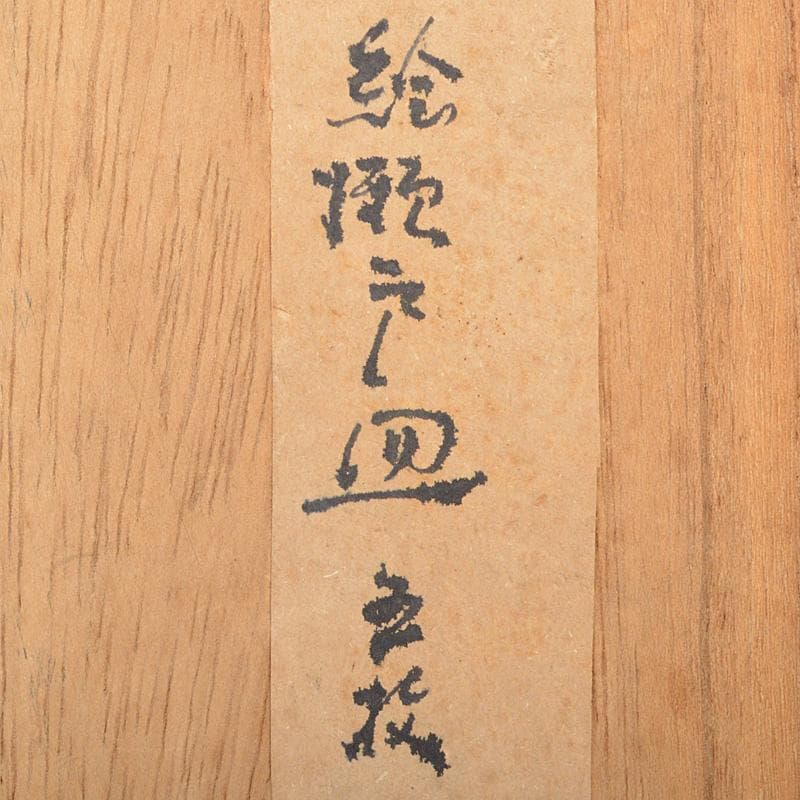 絵瀬戸皿 五枚